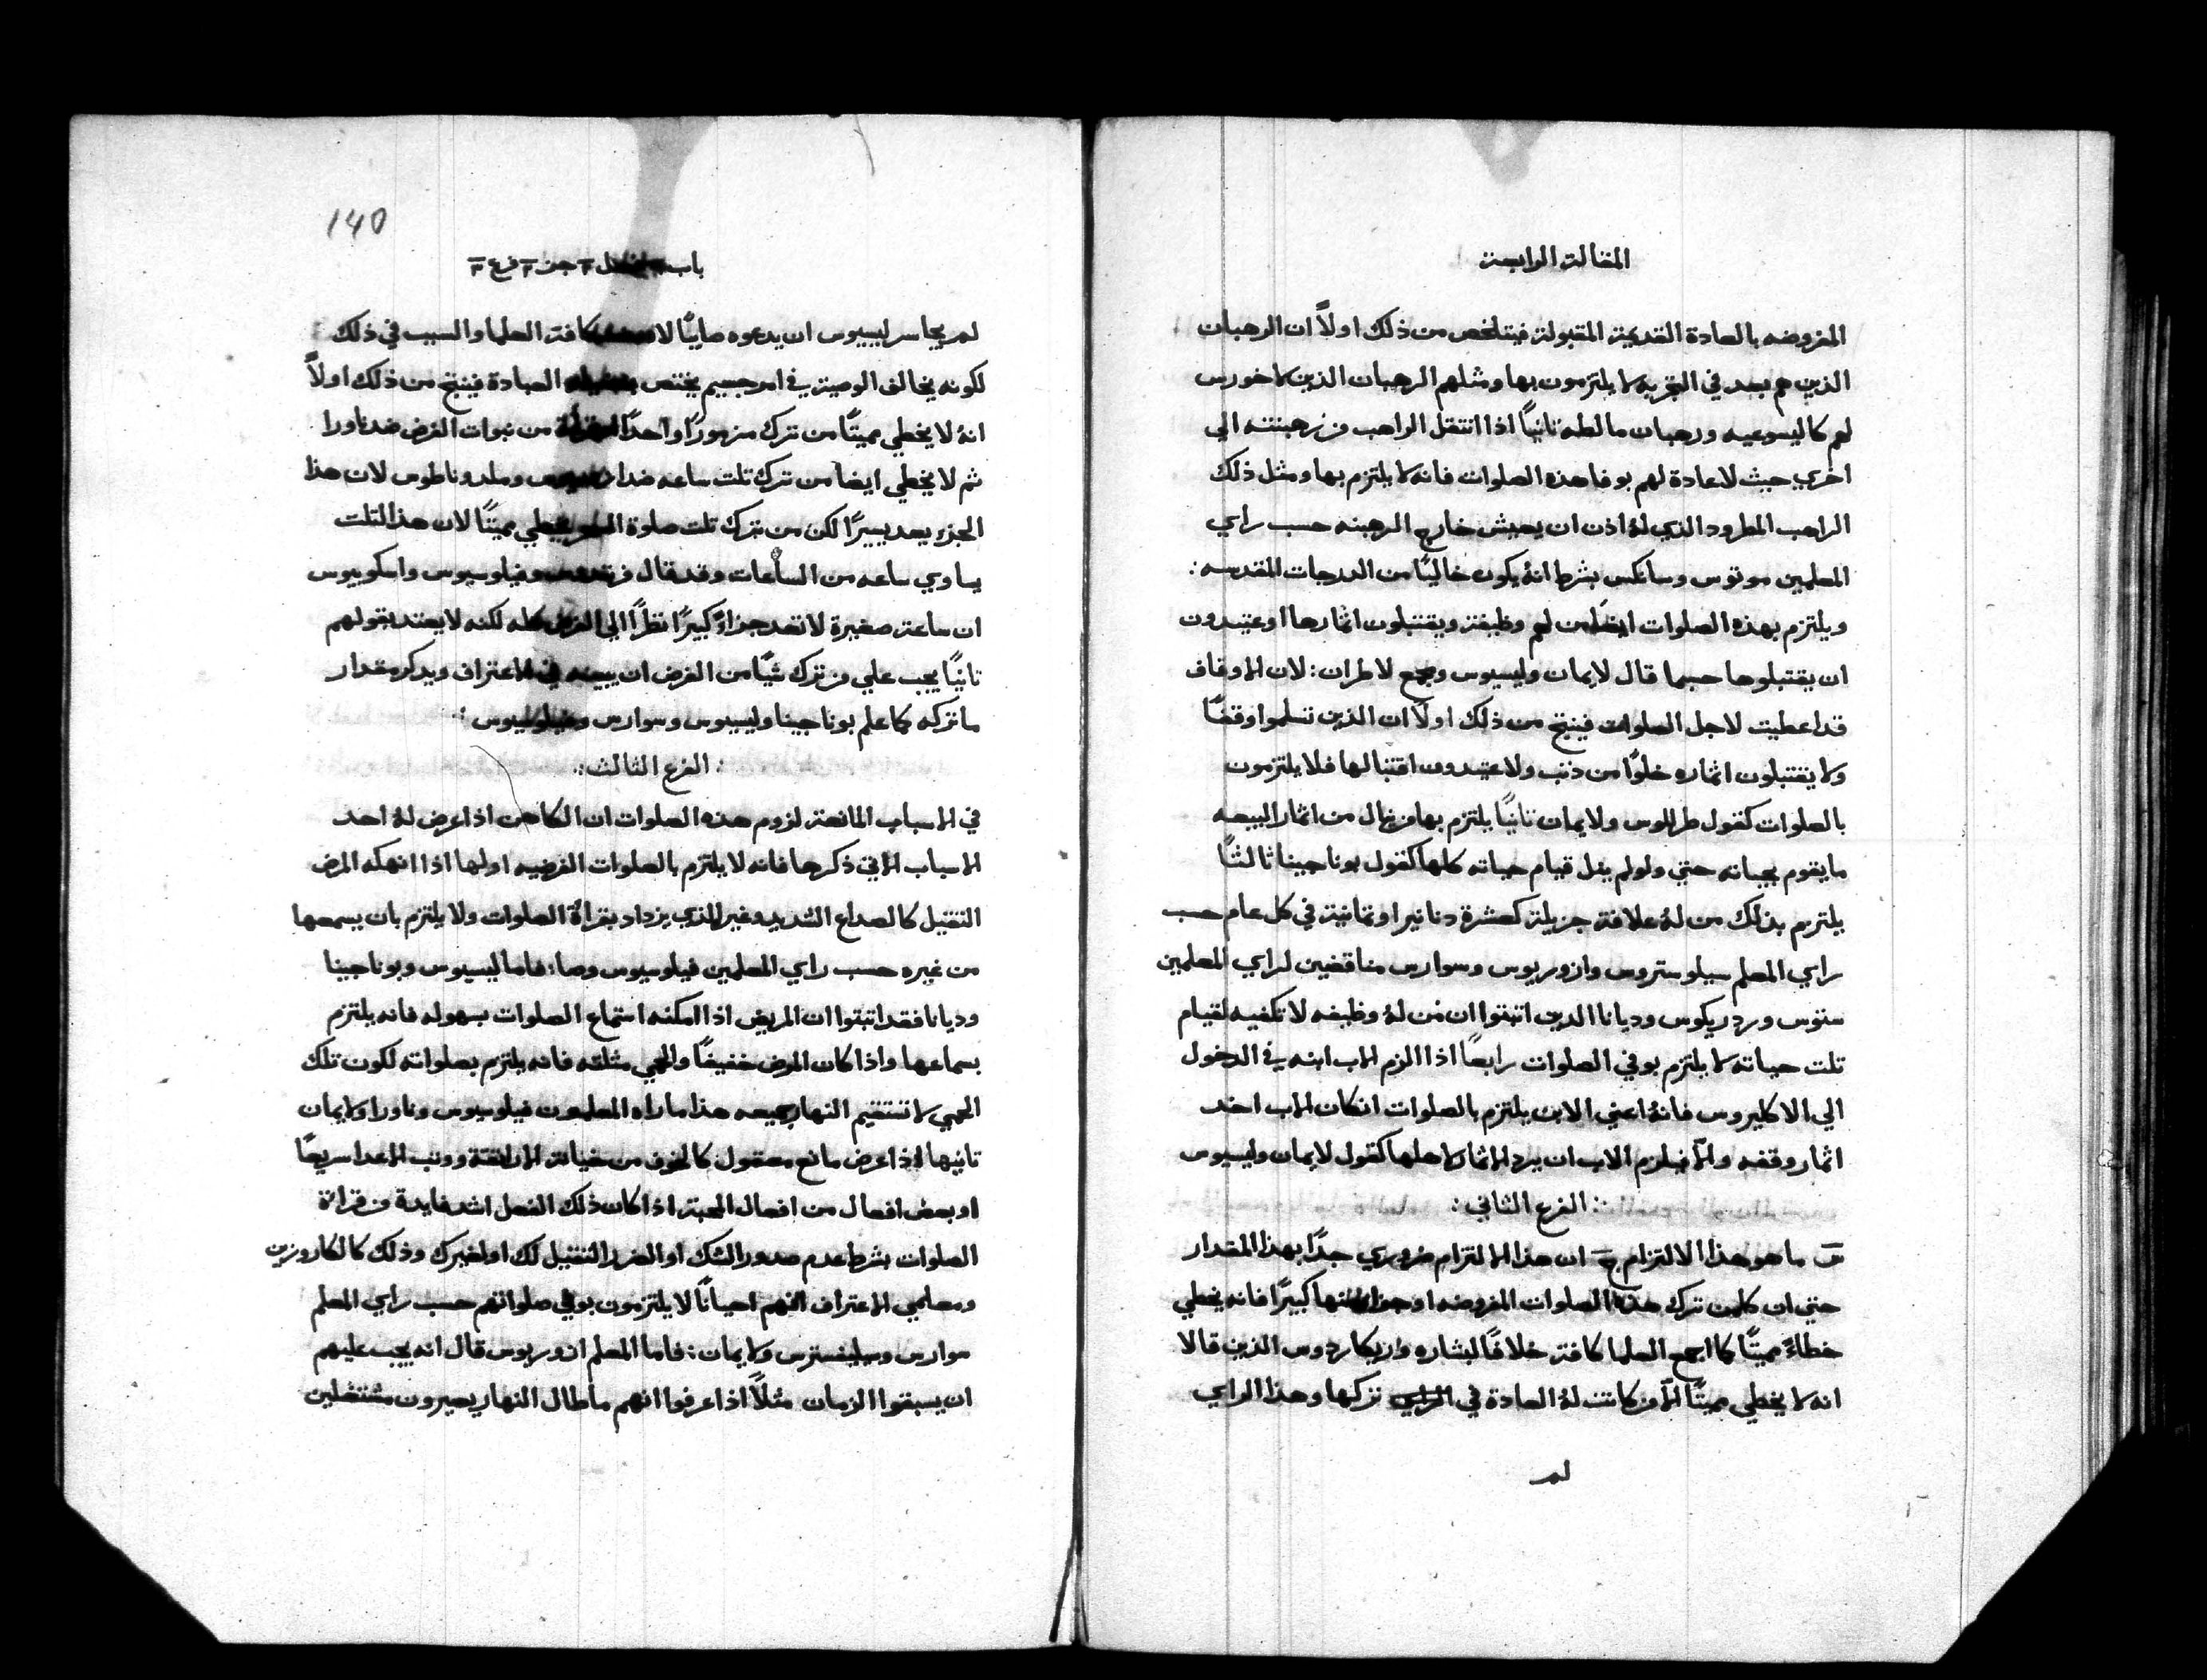 المقالة الرابعة
المفروضه بالعادة القديمة المقبولة فيتلخص من ذلك اولاً ان الرهبان
الذين هم بعد في التجربه لا يلتزمون بها ومثلهم الرهبان الذين لا خورس
لهم كاليسوعيه ورهبان مالطه ثانيًا اذا انتقل الراهب من رهبنته الي
اخري حيث لا عادة لهم بوفا هذه الصلوات فانه لا يلتزم بها ومثل ذلك
الراهب المطرود الذي لهُ اذن ان يعيش خارج الرهبنه حسب راي
المعلمين موتوس وسانكس بشرط انهُ يكون خاليًا من الدرجات المقدسه:
ويلتزم بهذه الصلوات ايضًا من لهم وظيفة ويقتبلون اثمارها او عتيدون
ان يقتبلوها حسبما قال لايمان وليسيوس ومجمع لاطران: لان الاوقاف
قد اعطيت لاجل الصلوات فينتج من ذلك اولاً ان الذين تسلموا وقفًا
ولا يقتبلون اثماره خلوًا من ذنب ولا عتيدون اقتبالها فلا يلتزمون
بالصلوات كقول طرللوس ولايمان ثانيًا يلتزم بها من نال من اثمار البيعه
ما يقوم بحياته حتي ولو لم ينل قيام حياته كلها كقول بوناجينا ثالثًا
يلتزم بذلك من لهُ علافة جزيلة كعشرة دنانير او ثمانية في كل عام حسب
راي المعلم سيلوستروس وازوريوس وسوارس مناقضين لراي المعلمين
ستوس وردريكوس وديانا الدين اثبتوا ان من لهُ وظيفه لا تكفيه لقيام
تلت حياته لا يلتزم بوفي الصلوات رابعًا اذا الزم الاب ابنه في الدخول
الي الاكليروس فانهُ اعني الابن يلتزم بالصلوات ان كان الاب اخد
اثمار وقفه والاّ فيلزم الاب ان يرد الاثمار لاهلها كقول لايمان وليسيوس
∴ الفرع الثاني :
س ما هو هذا الالتزام ج ان هذا الالتزام ضروري جدًا بهذا المقدار
حتي ان كلمن ترك هذه الصلوات المفروضه او جزا منها كبيرًا فانه يخطي
خطاءً مميتًا كما اجمع العلما كافة خلافًا لبشاره واريكاردوس الذين قالا
انه لا يخطي مميتًا الاّ من كانت لهُ العادة في تركها وهذا الراي
لم
140
باب ٣ جز ٣ فرع ٣
لم يجاسر ليسيوس ان يدعوه صايبًا كافة العلما والسبب في ذلك
لكونه يخالف الوصية في امر جسيم يختص العبادة فينتج من ذلك اولاً
انهُ لا يخطي مميتًا من ترك مزمورًا واحدًا من نبوات الفرض ضد ناورا
ثم لا يخطي ايضًا من ترك تلت ساعه ضدا وملدوناطوس لان هذا
الجزء يعد يسيرًا لكن من ترك تلت صلوة يخطي مميتًا لان هذا التلت
يساوي ساعه من الساعات وقد قال وفيلوسيوس واسكوبيوس
ان ساعة صغيرة لا تعد جزاءً كبيرًا نظرًا الي كله لكنه لا يعتد بقولهم
ثانيًا يجب علي من ترك شيًا من الفرض ان يبينه في الاعتراف ويدكر مقدار
ما تركه كما علم بوناجينا وليسيوس وسوارس وفيلوسيوس :
∴ الفرع الثالث ∴
في الاسباب المانعة لزوم هذه الصلوات ان الكاهن اذا عرض لهُ احد
الاسباب الاتي ذكرها فانه لا يلتزم بالصلوات الفرضيه اولها اذا انهكه المرض
الثقيل كالصداع الشديد وغير الذي يزداد بقراة الصلوات ولا يلتزم بان يسمعها
من غيره حسب راي المعلمين فيلوسيوس وصا: فاما ليسيوس وبوناجينا
وديانا فقد اثبتوا ان المريض اذا امكنه استماع الصلوات بسهوله فانه يلتزم
بسماعها واذا كان المرض خفيفًا والحمي مثلثه فانه يلتزم بصلواته لكون تلك
الحمي لا تستقيم النهار جميعه هذا ما راه المعلمون فيلوسيوس وناورا ولايمان
ثانيها اذا عرض مانع معقول كالخوف من خيانة ووثب الاعدا سريعًا
او بعض افعال من افعال المحبة اذا كان ذلك الفعل اشد فايدة من قرائة
الصلوات بشرط عدم صدور الشك او الضرر الثقيل لك او لغيرك وذلك كالكاروزين
ومعلمي الاعتراف انهم احيانًا لا يلتزمون بوفي صلواتهم حسب راي المعلم
سوارس وسيلفستوس ولايمان: فاما المعلم ازوريوس قال انه يجب عليهم
ان يسبقوا الزمان مثلاً اذا عرفوا انهم ما طال النهار يصيرون مشتغلين